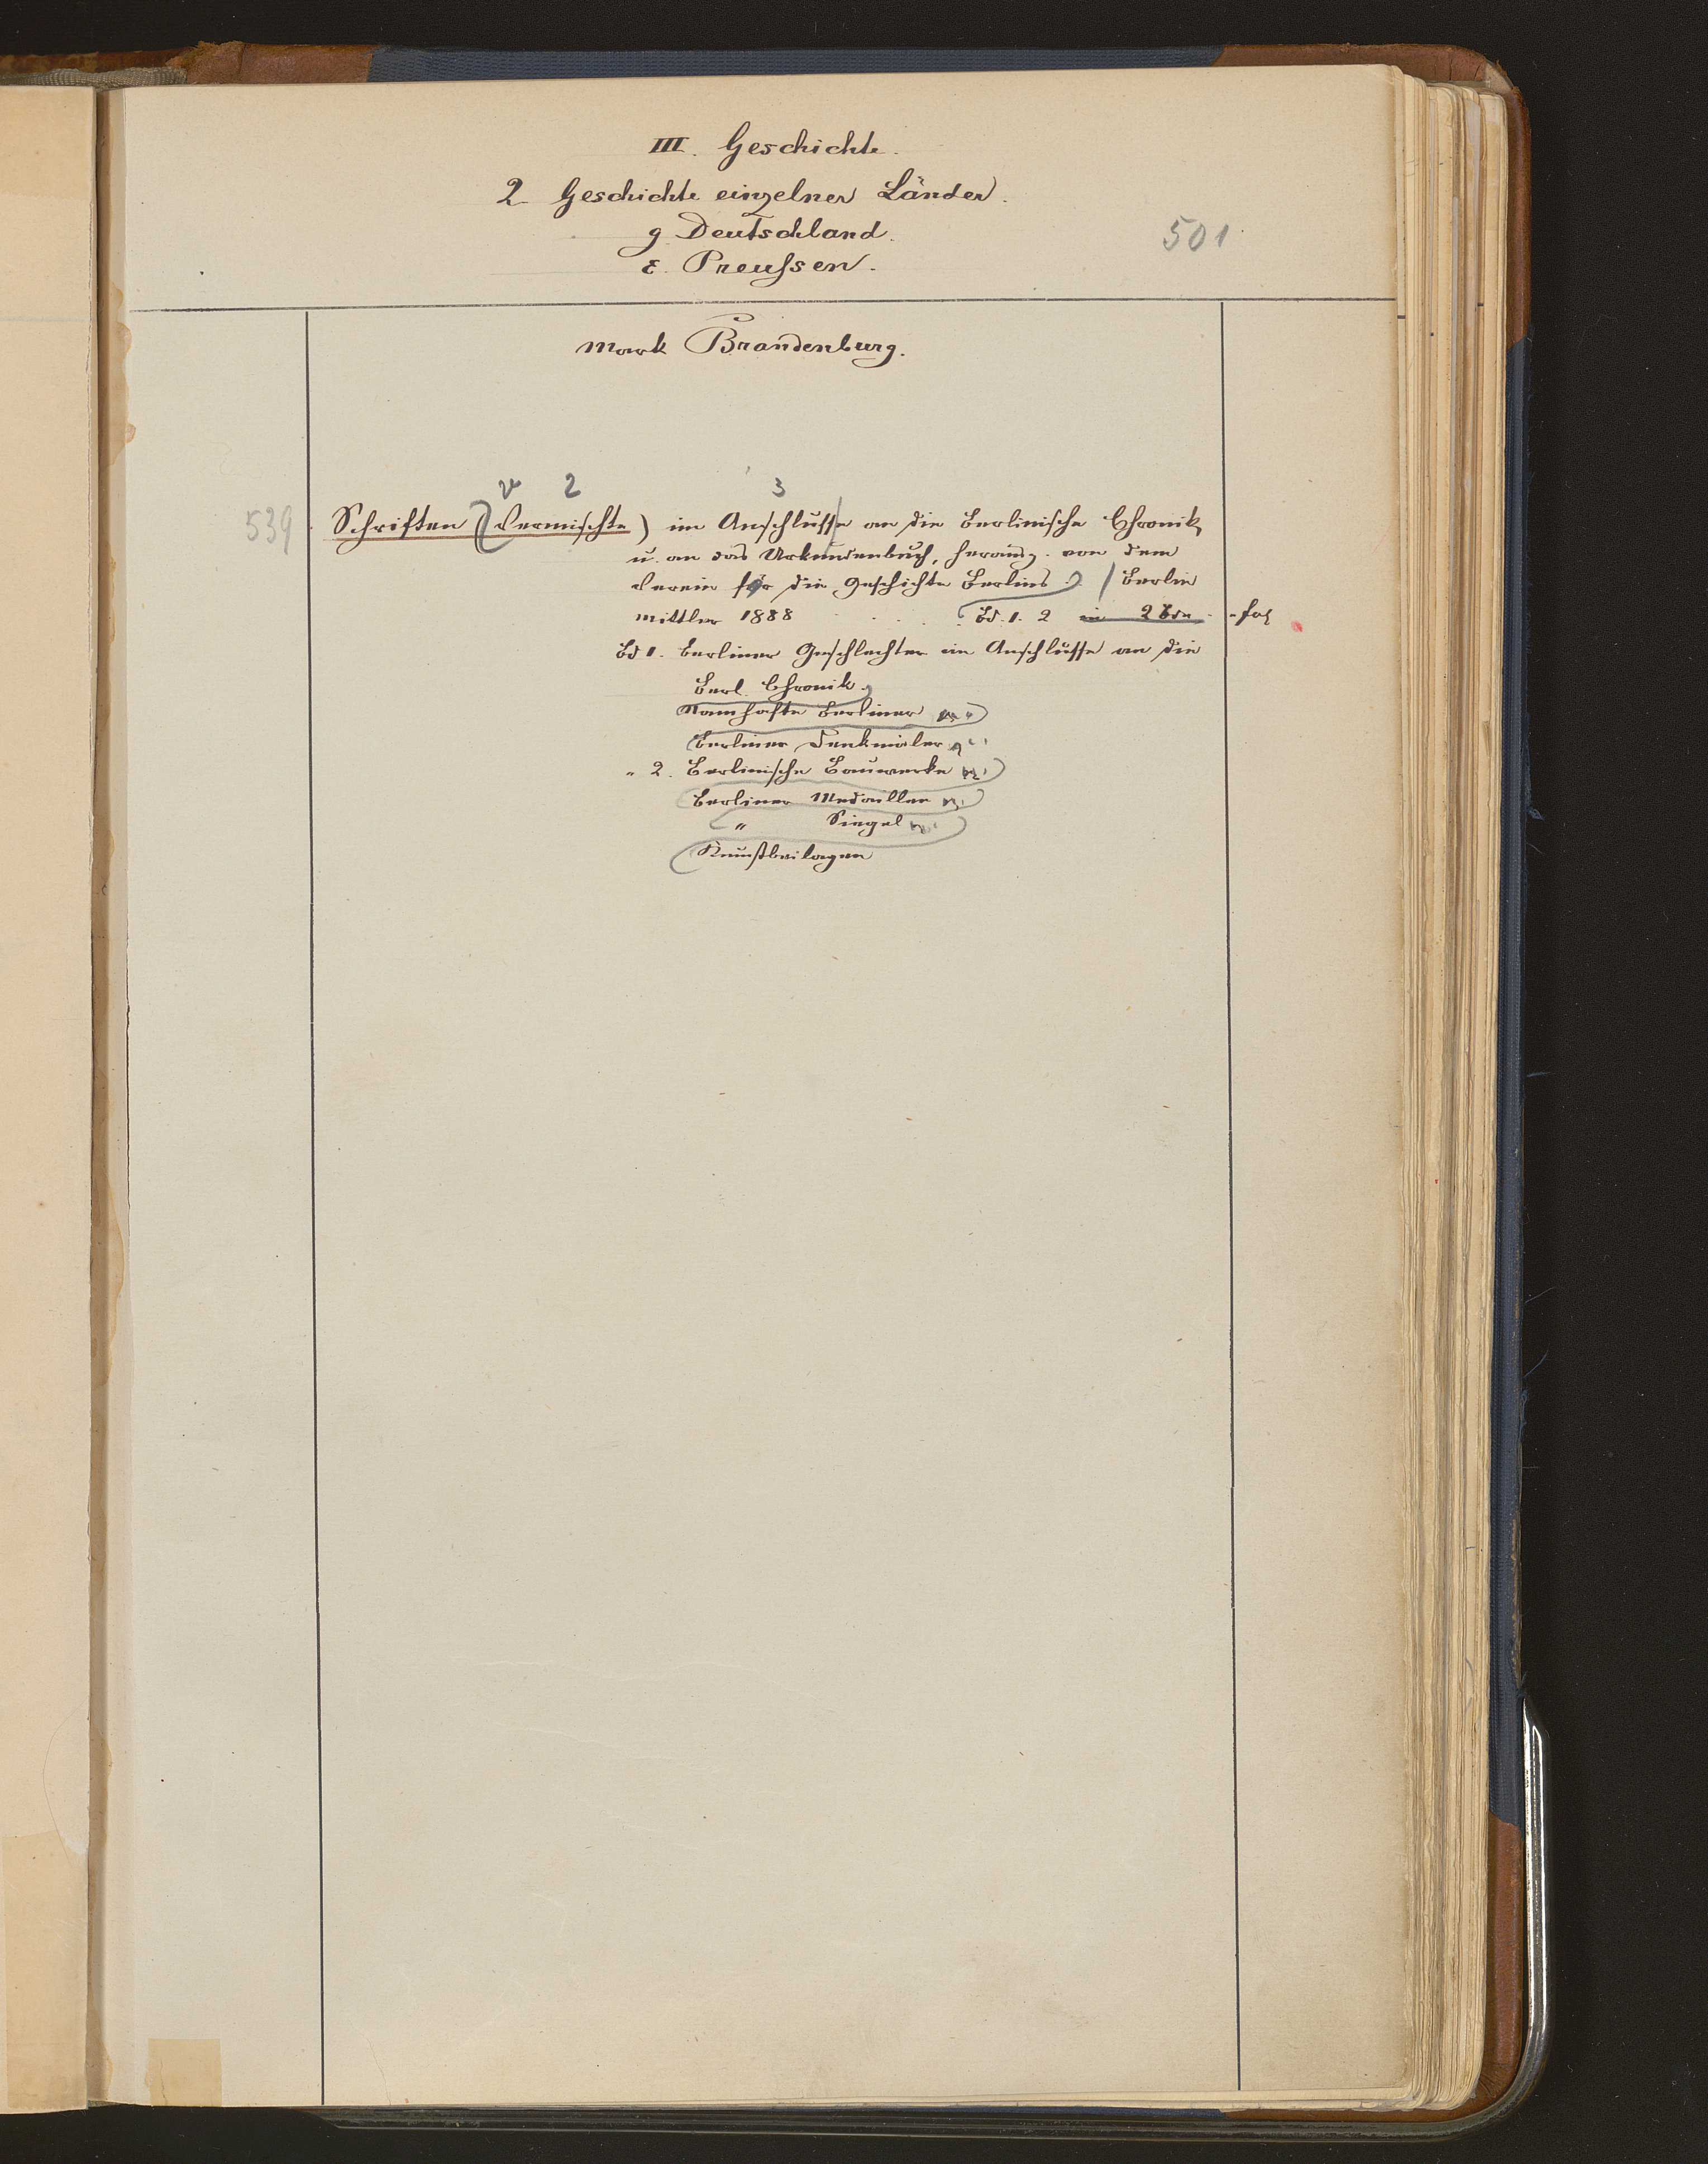 III. Geschichte.
2. Geschichte einzelner Länder.
g. Deutschland.
501
ε. Preußsen.
Mark Brandenburg.
v 2 3
539 Schriften (Vermischte) im Anschlusse an die Berlinische Chronik
u. an das Urkundenbuch, herausg. von dem
Verein für die Geschichte Berlins. / Berlin
Mittler 1888 . . . . . Bd. 1. 2 in 2 Bdn - fol
Bd 1. Berliner Geschlechter im Anschlusse an die
Berl. Chronik.
Namhafte Berliner
Berliner Denkmäler
" 2. Berlinische Bauwerke
Berliner Medaillen
" Siegel
Kunstbeilagen